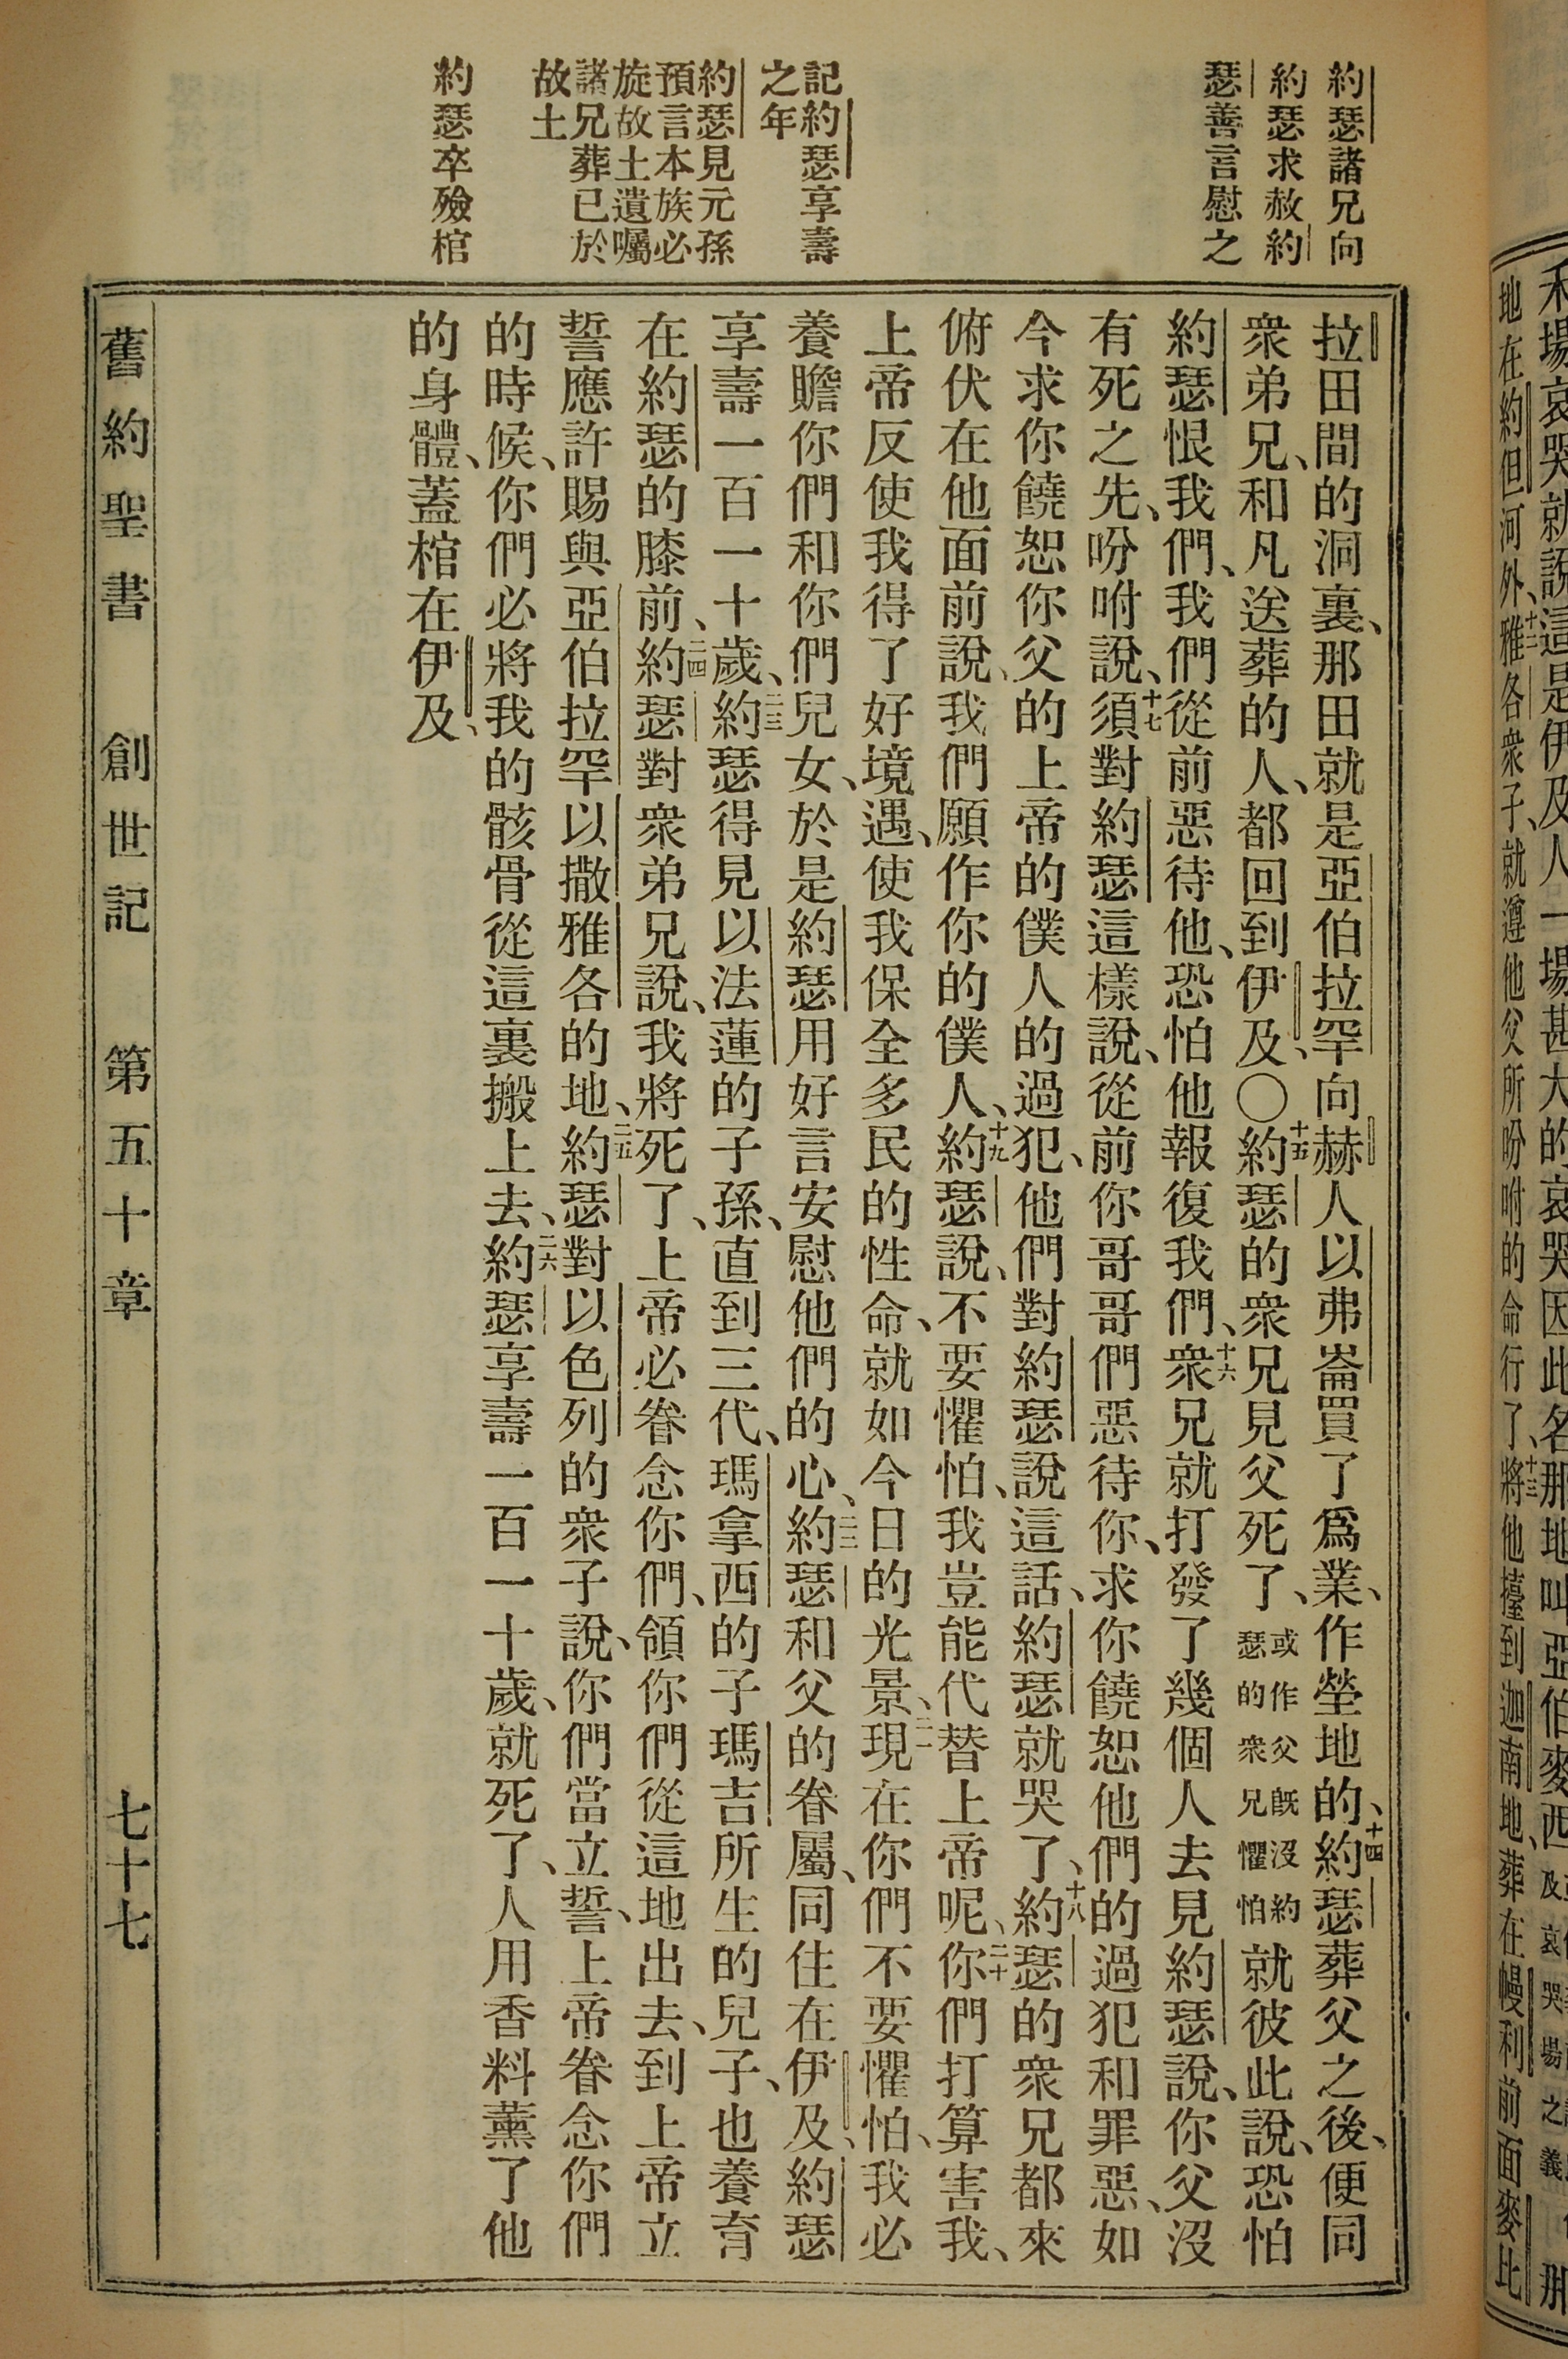 約瑟諸兄向
約瑟求赦約
瑟善言慰之
記約瑟享壽
之年
約瑟見元孫
預言本族必
旋故土遺囑
諸兄葬已於
故土
約瑟卒殮棺
拉田間的洞裏、那田就是亞伯拉罕向赫人以弗崙買了爲業、作塋地的、十四約瑟葬父之後、便同
衆弟兄、和凡送葬的人、都回到伊及、○十五約瑟的衆兄見父死了、或作父旣沒約瑟的衆兄懼怕就彼此說、恐怕
約瑟恨我們、我們從前惡待他、恐怕他報復我們、十六衆兄就打發了幾個人去見約瑟說、你父沒
有死之先、吩咐說、十七須對約瑟這樣說、從前你哥哥們惡待你、求你饒恕他們的過犯和罪惡、如
今求你饒恕你父的上帝的僕人的過犯、他們對約瑟說這話、約瑟就哭了、十八約瑟的衆兄都來
俯伏在他面前說、我們願作你的僕人、十九約瑟說、不要懼怕、我豈能代替上帝呢、二十你們打算害我、
上帝反使我得了好境遇、使我保全多民的性命、就如今日的光景、二一現在你們不要懼怕、我必
養贍你們和你們兒女、於是約瑟用好言安慰他們的心、二二約瑟和父的眷屬、同住在伊及、約瑟
享壽一百一十歲、二三約瑟得見以法蓮的子孫、直到三代、瑪拿西的子瑪吉所生的兒子、也養育
在約瑟的膝前、二四約瑟對衆弟兄說、我將死了、上帝必眷念你們、領你們從這地出去、到上帝立
誓應許賜與亞伯拉罕以撒雅各的地、二五約瑟對以色列的衆子說、你們當立誓、上帝眷念你們
的時候、你們必將我的骸骨從這裏搬上去、二六約瑟享壽一百一十歲、就死了、人用香料薰了他
的身體、蓋棺在伊及、
舊約聖書 創世記 第五十章 七十七